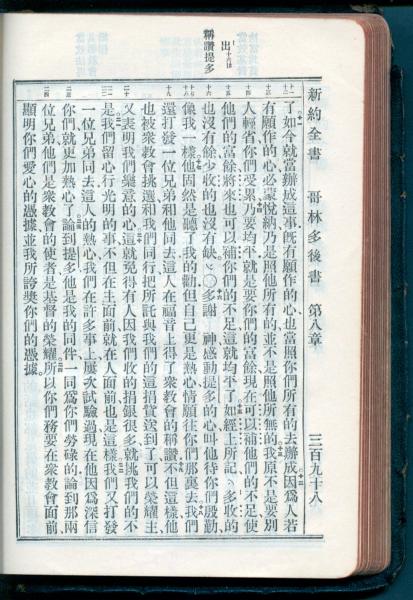 新約全書 哥林多後書 第八章 三百九十八
出十六18
稱讚提多
了如今就當辦成這事旣有願作的心也當照你們所有的去辦成因爲人若
有願作的心必蒙悅納乃是照他所有的並不是照他所無的我原不是要別
人輕省你們受累乃要均平就是要你們的富餘現在可以補他們的不足使
他們的富餘將來也可以補你們的不足這就均平了如經上所記多收的
也沒有餘少收的也沒有缺○多謝 神感動提多的心叫他待你們殷勤
像我一樣他固然是聽了我的勸但自己更是熱心情願往你們那裏去我們
還打發一位兄弟和他同去這人在福音上得了衆教會的稱讚不但這樣他
也被衆教會挑選和我們同行把所託與我們的這捐貲送到了可以榮耀主
又表明我們樂意的心這就免得有人因我們收的捐銀很多就挑我們的不
是我們留心行光明的事不但在主面前就在人面前也是這樣我們又打發
一位兄弟同去這人的熱心我們在許多事上屢次試驗過現在他因爲深信
你們就更加熱心了論到提多他是我的同伴一同爲你們勞碌的論到那兩
位兄弟他們是衆教會的使者是基督的榮耀所以你們務要在衆教會面前
顯明你們愛心的憑據並我所誇獎你們的憑據